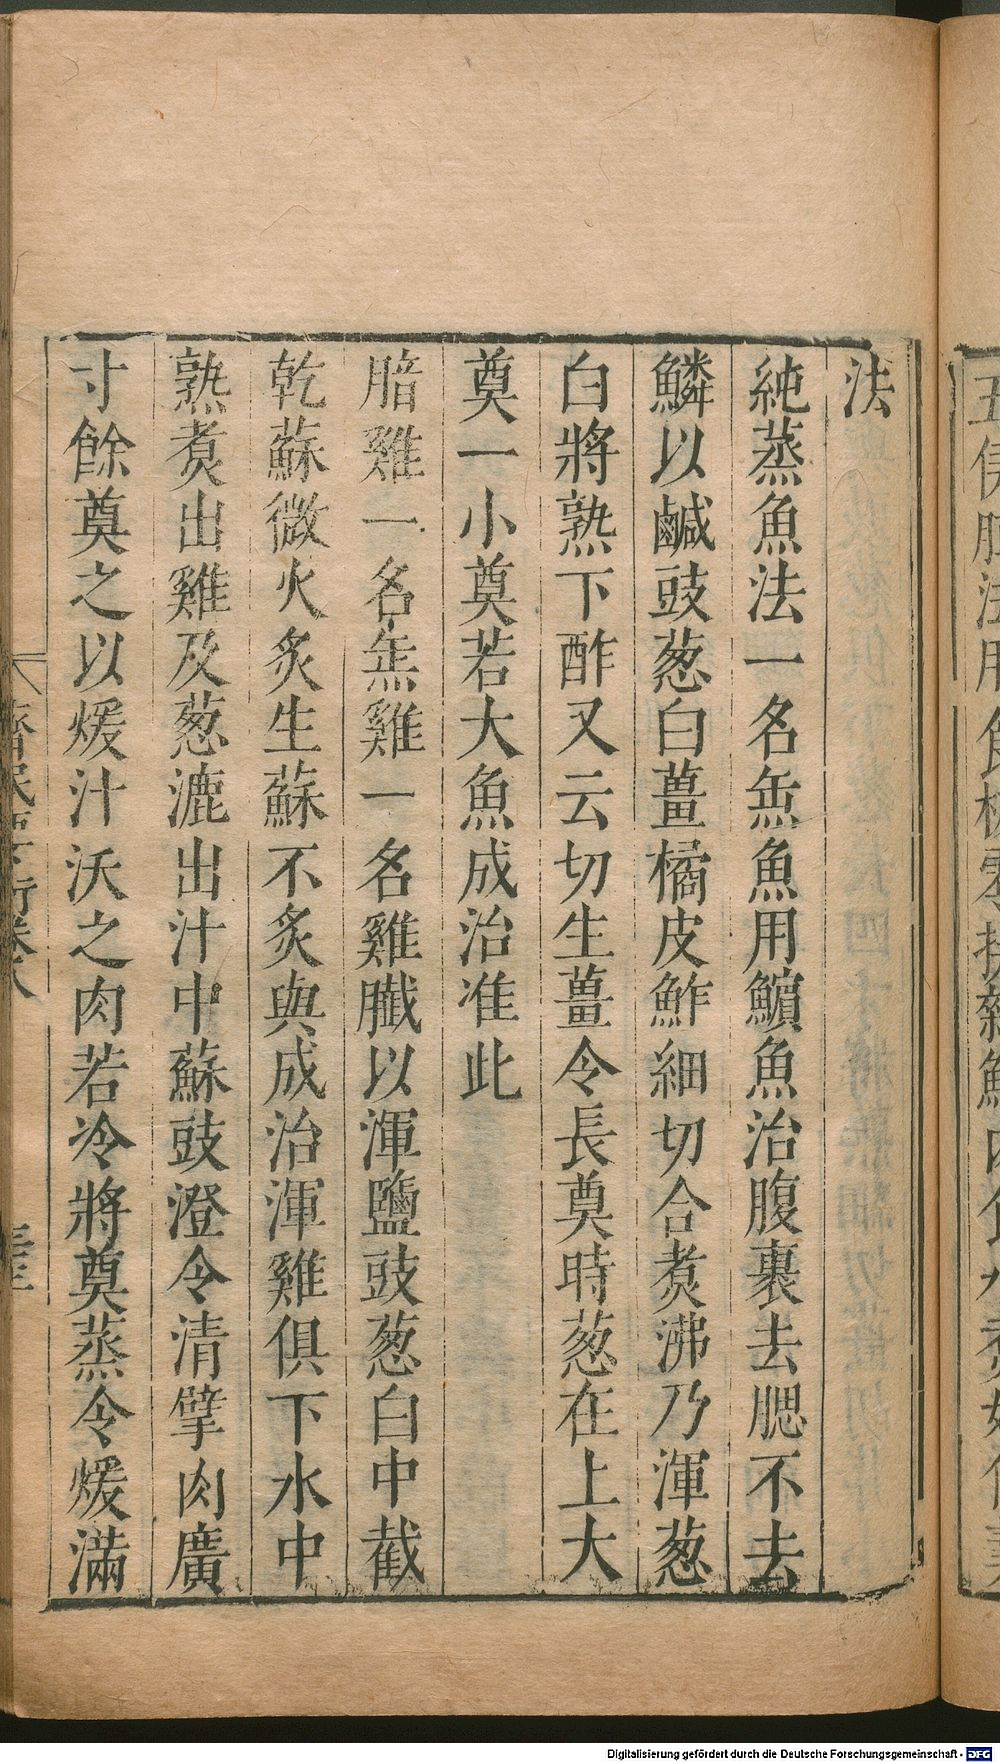 法
純蒸魚法一名缹魚用鱝魚治腹裹去腮不去
鱗以鹹豉葱白薑橘皮鮓細切合煑沸乃渾葱
白將熟下酢又云切生薑令長奠時葱在上大
奠一小奠若大魚成治准此
腤雞一名缹雞一名雞臟以渾鹽豉葱白中截
乾蘇微火炙生蘇不炙與成治渾雞俱下水中
熟煑出雞及葱漉出汁中蘇豉澄令清擘肉廣
寸餘奠之以煖汁沃之肉若冷將奠蒸令煖滿
齊民要術卷八
Digitalisierung gefördert durch die Deutsche Forschungsgemeinschaft - DFG